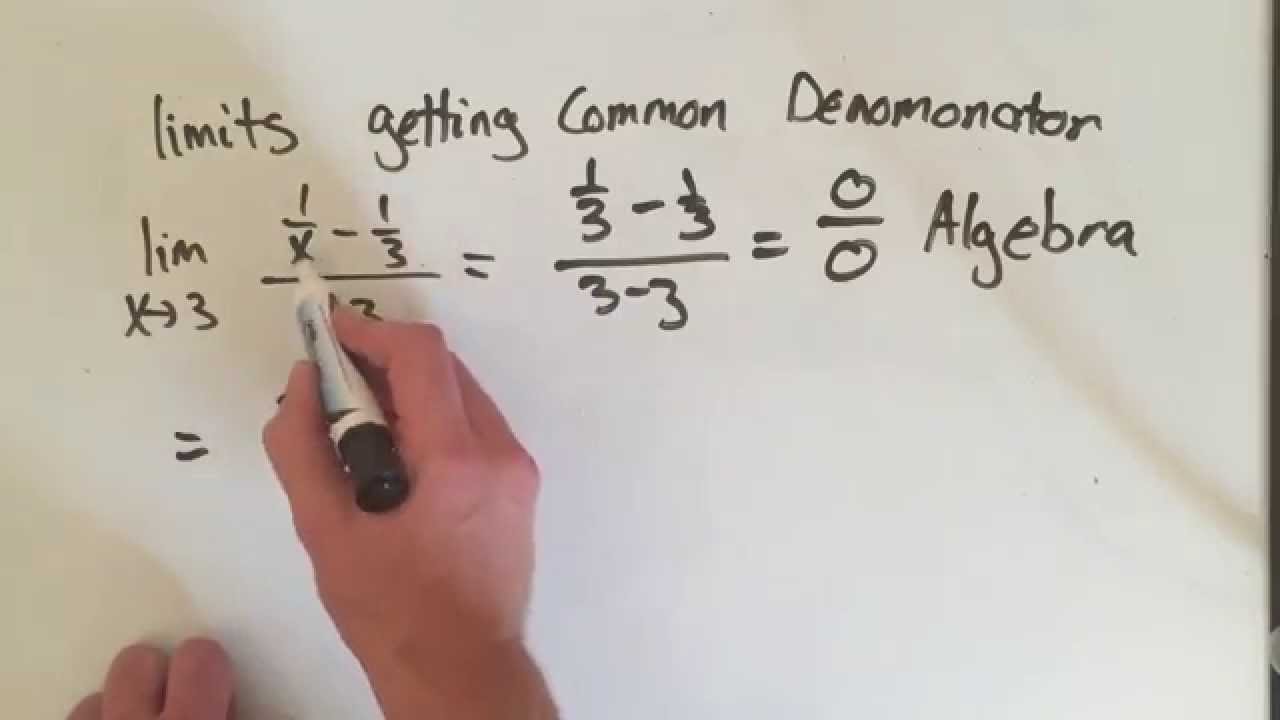 limits getting Common Denomonator
lim x→3 (1/x − 1/3)/( 3) = (1/3 − 1/3)/(3−3) = 0/0 Algebra
=